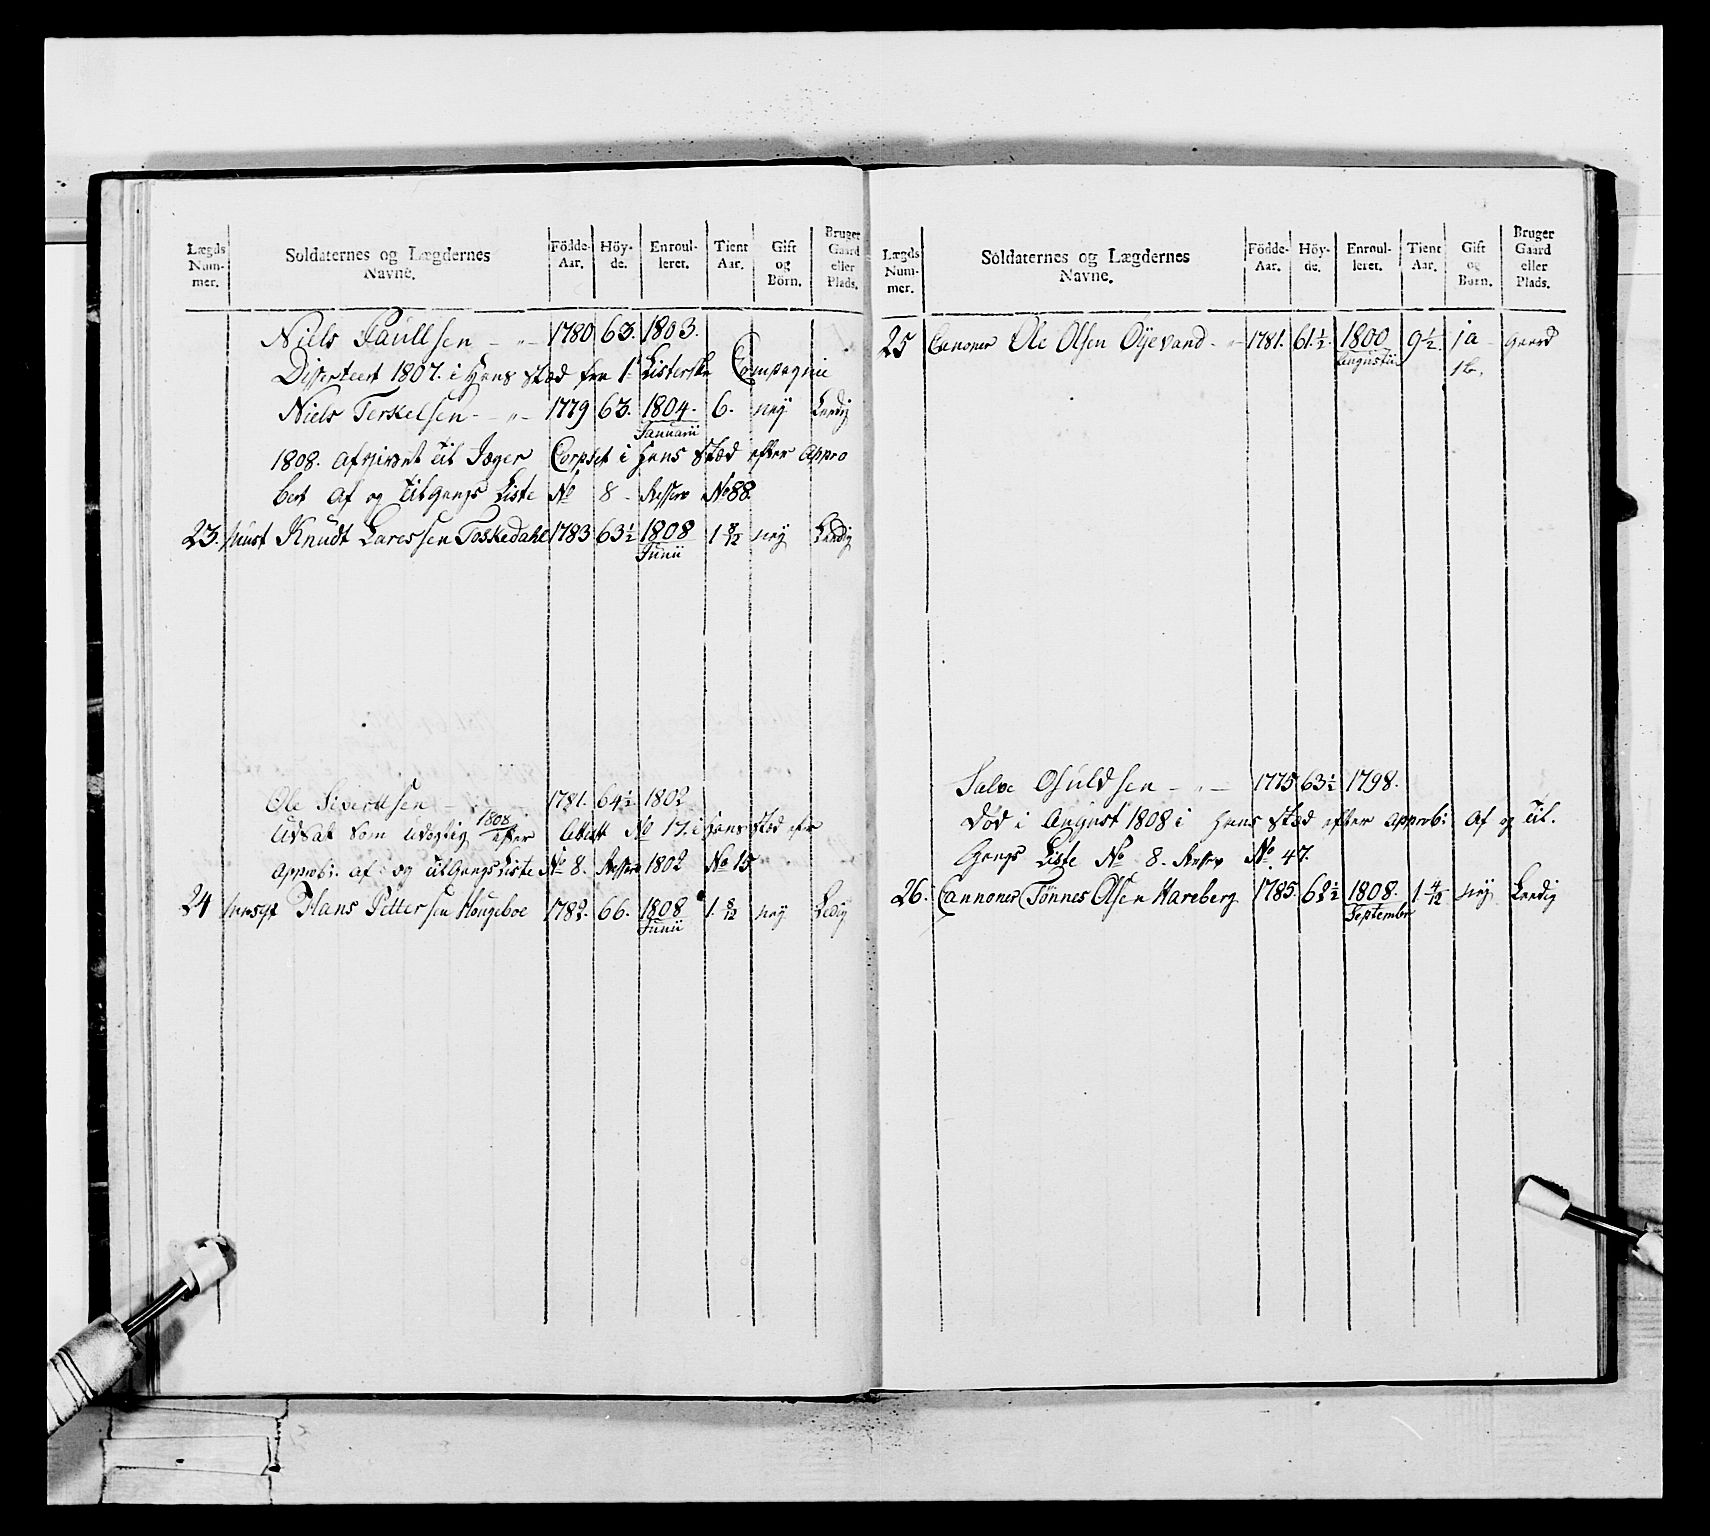 Lægds Num- mer. Soldaternes og Lægdernes Navne. Födde- Aar. Höy- de. Enroul- leret. Tient Aar. Gift og Börn. Bruger Gaard eller Plads.
Niels Paullsen - „ - 1780 63. 1803.
Disserteert 1807. i Hans Stæd fra 1te Listerske Compagnie
Niels Terkelsen - „ - 1779 63. 1804. 6. nej Leedig
Januarii
1808. afgivet til Jæger Corpset i Hans Stæd efter appro
bert af og tilgangs Liste No 8 - Resserv No 88.
23. Knudt Larssen Toskedahl 1783 63½ 1808 1 8/12 nej Leedig
Junii
Ole Sivertsen - 1781. 64½ 1802
1808
Udsat som udygtig efter No 17. i Hans Stæd efter
approb: af og tilgangs Liste No 8. Resserv 1802 No 15
24 Hans Pettersen Hougeboe 1782. 66. 1808 1. 8/12 nej Ledig
Junii
Lægds Num- mer. Soldaternes og Lægdernes Navne. Födde- Aar. Höy- de. Enroul- leret. Tient Aar. Gift og Börn. Bruger Gaard eller Plads.
25 Canoner Ole Olsen Oÿevand - „ - 1781. 61½ 1800 9½ ja gaard
Augustii 1 b.
Salve Osuldsen - „ - 1775 63½ 1798.
Död i August 1808 i Hans Stæd efter approb: af og til.
Gangs Liste No 8. Resserv No 47.
26. Cannoner Tönnes Olsen Hareberg 1785. 62½ 1808. 1 4/12 nej Leedig
Septembr